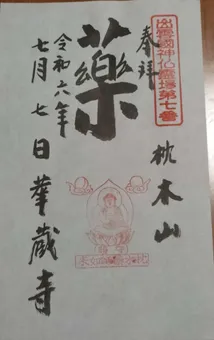 出雲國神仏霊場第七番
奉拝
枕木山
薬
令和六年
七月七日華蔵寺